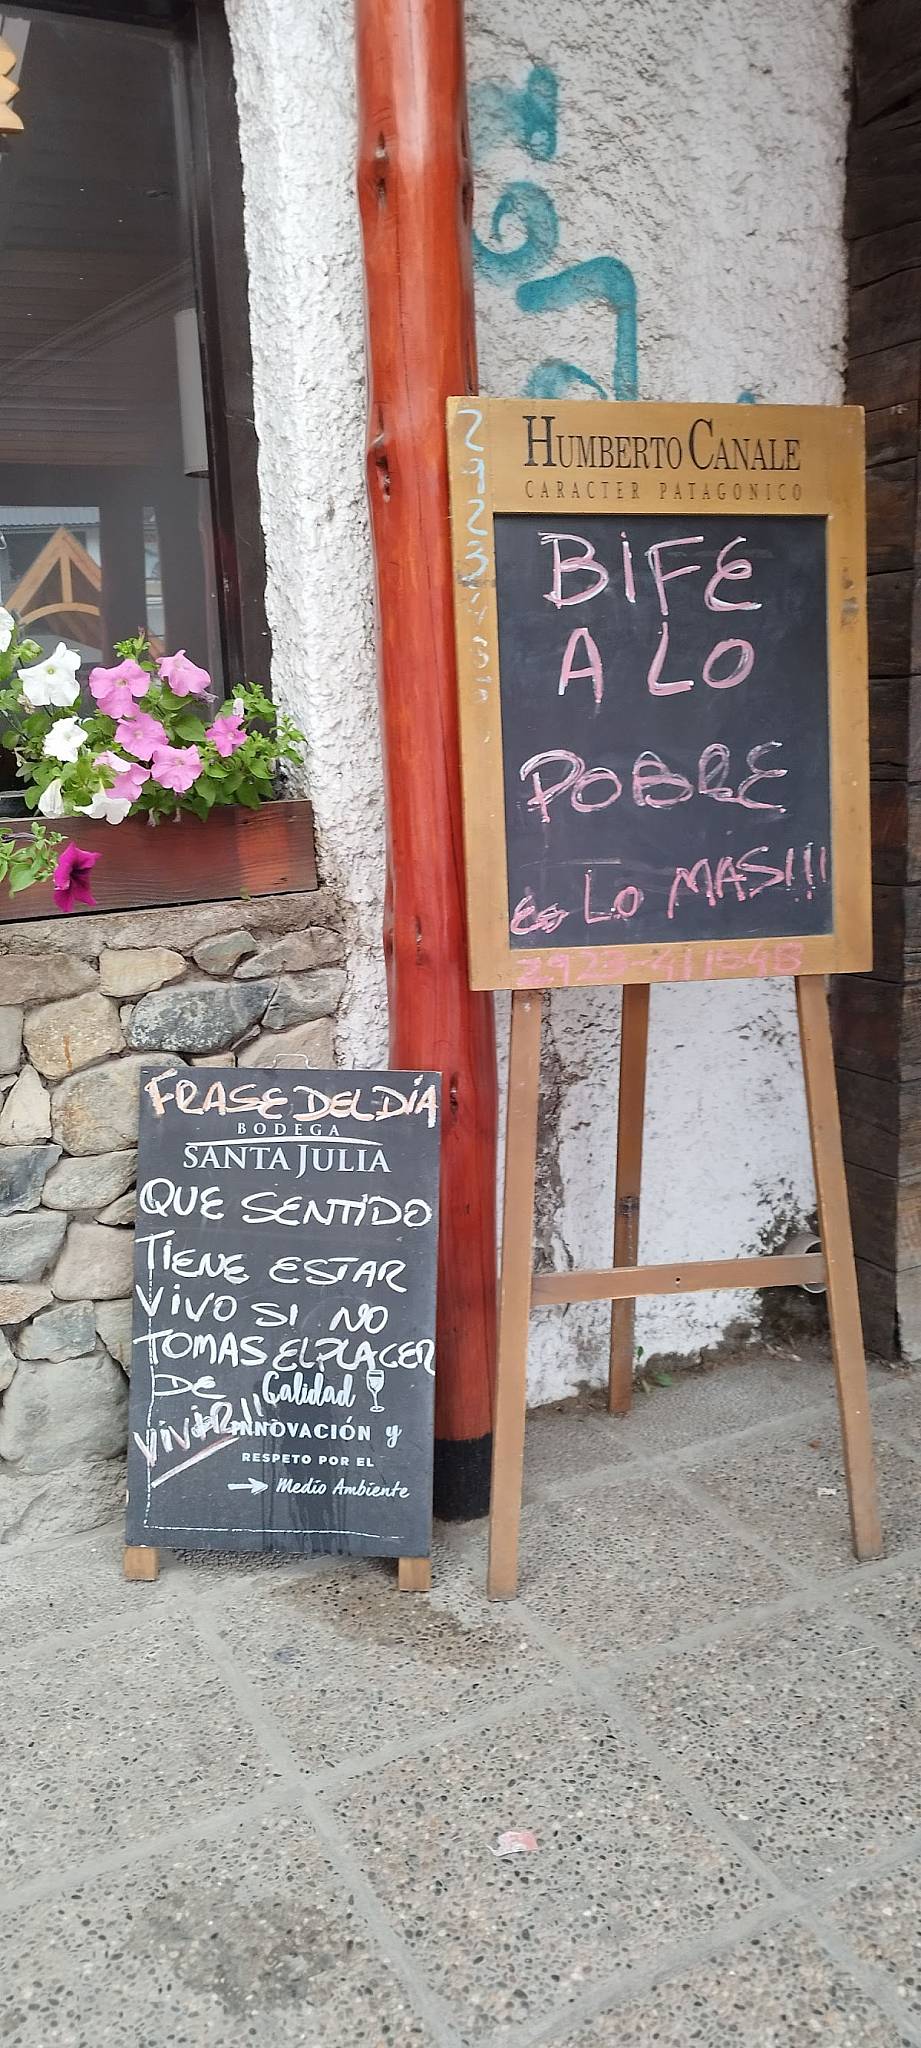 HUMBERTO CANALE
CARACTER PATAGONICO
BIFE
A LO
POBRE
Es LO MAS!!!
2923-411548
FRASE DEL DÍA
BODEGA
SANTA JULIA
QUE SENTIDO
TIENE ESTAR
VIVO SI NO
TOMAS EL PLACER
DE
VIVIR!!
Calidad
INNOVACIÓN y
RESPETO POR EL
Medio Ambiente